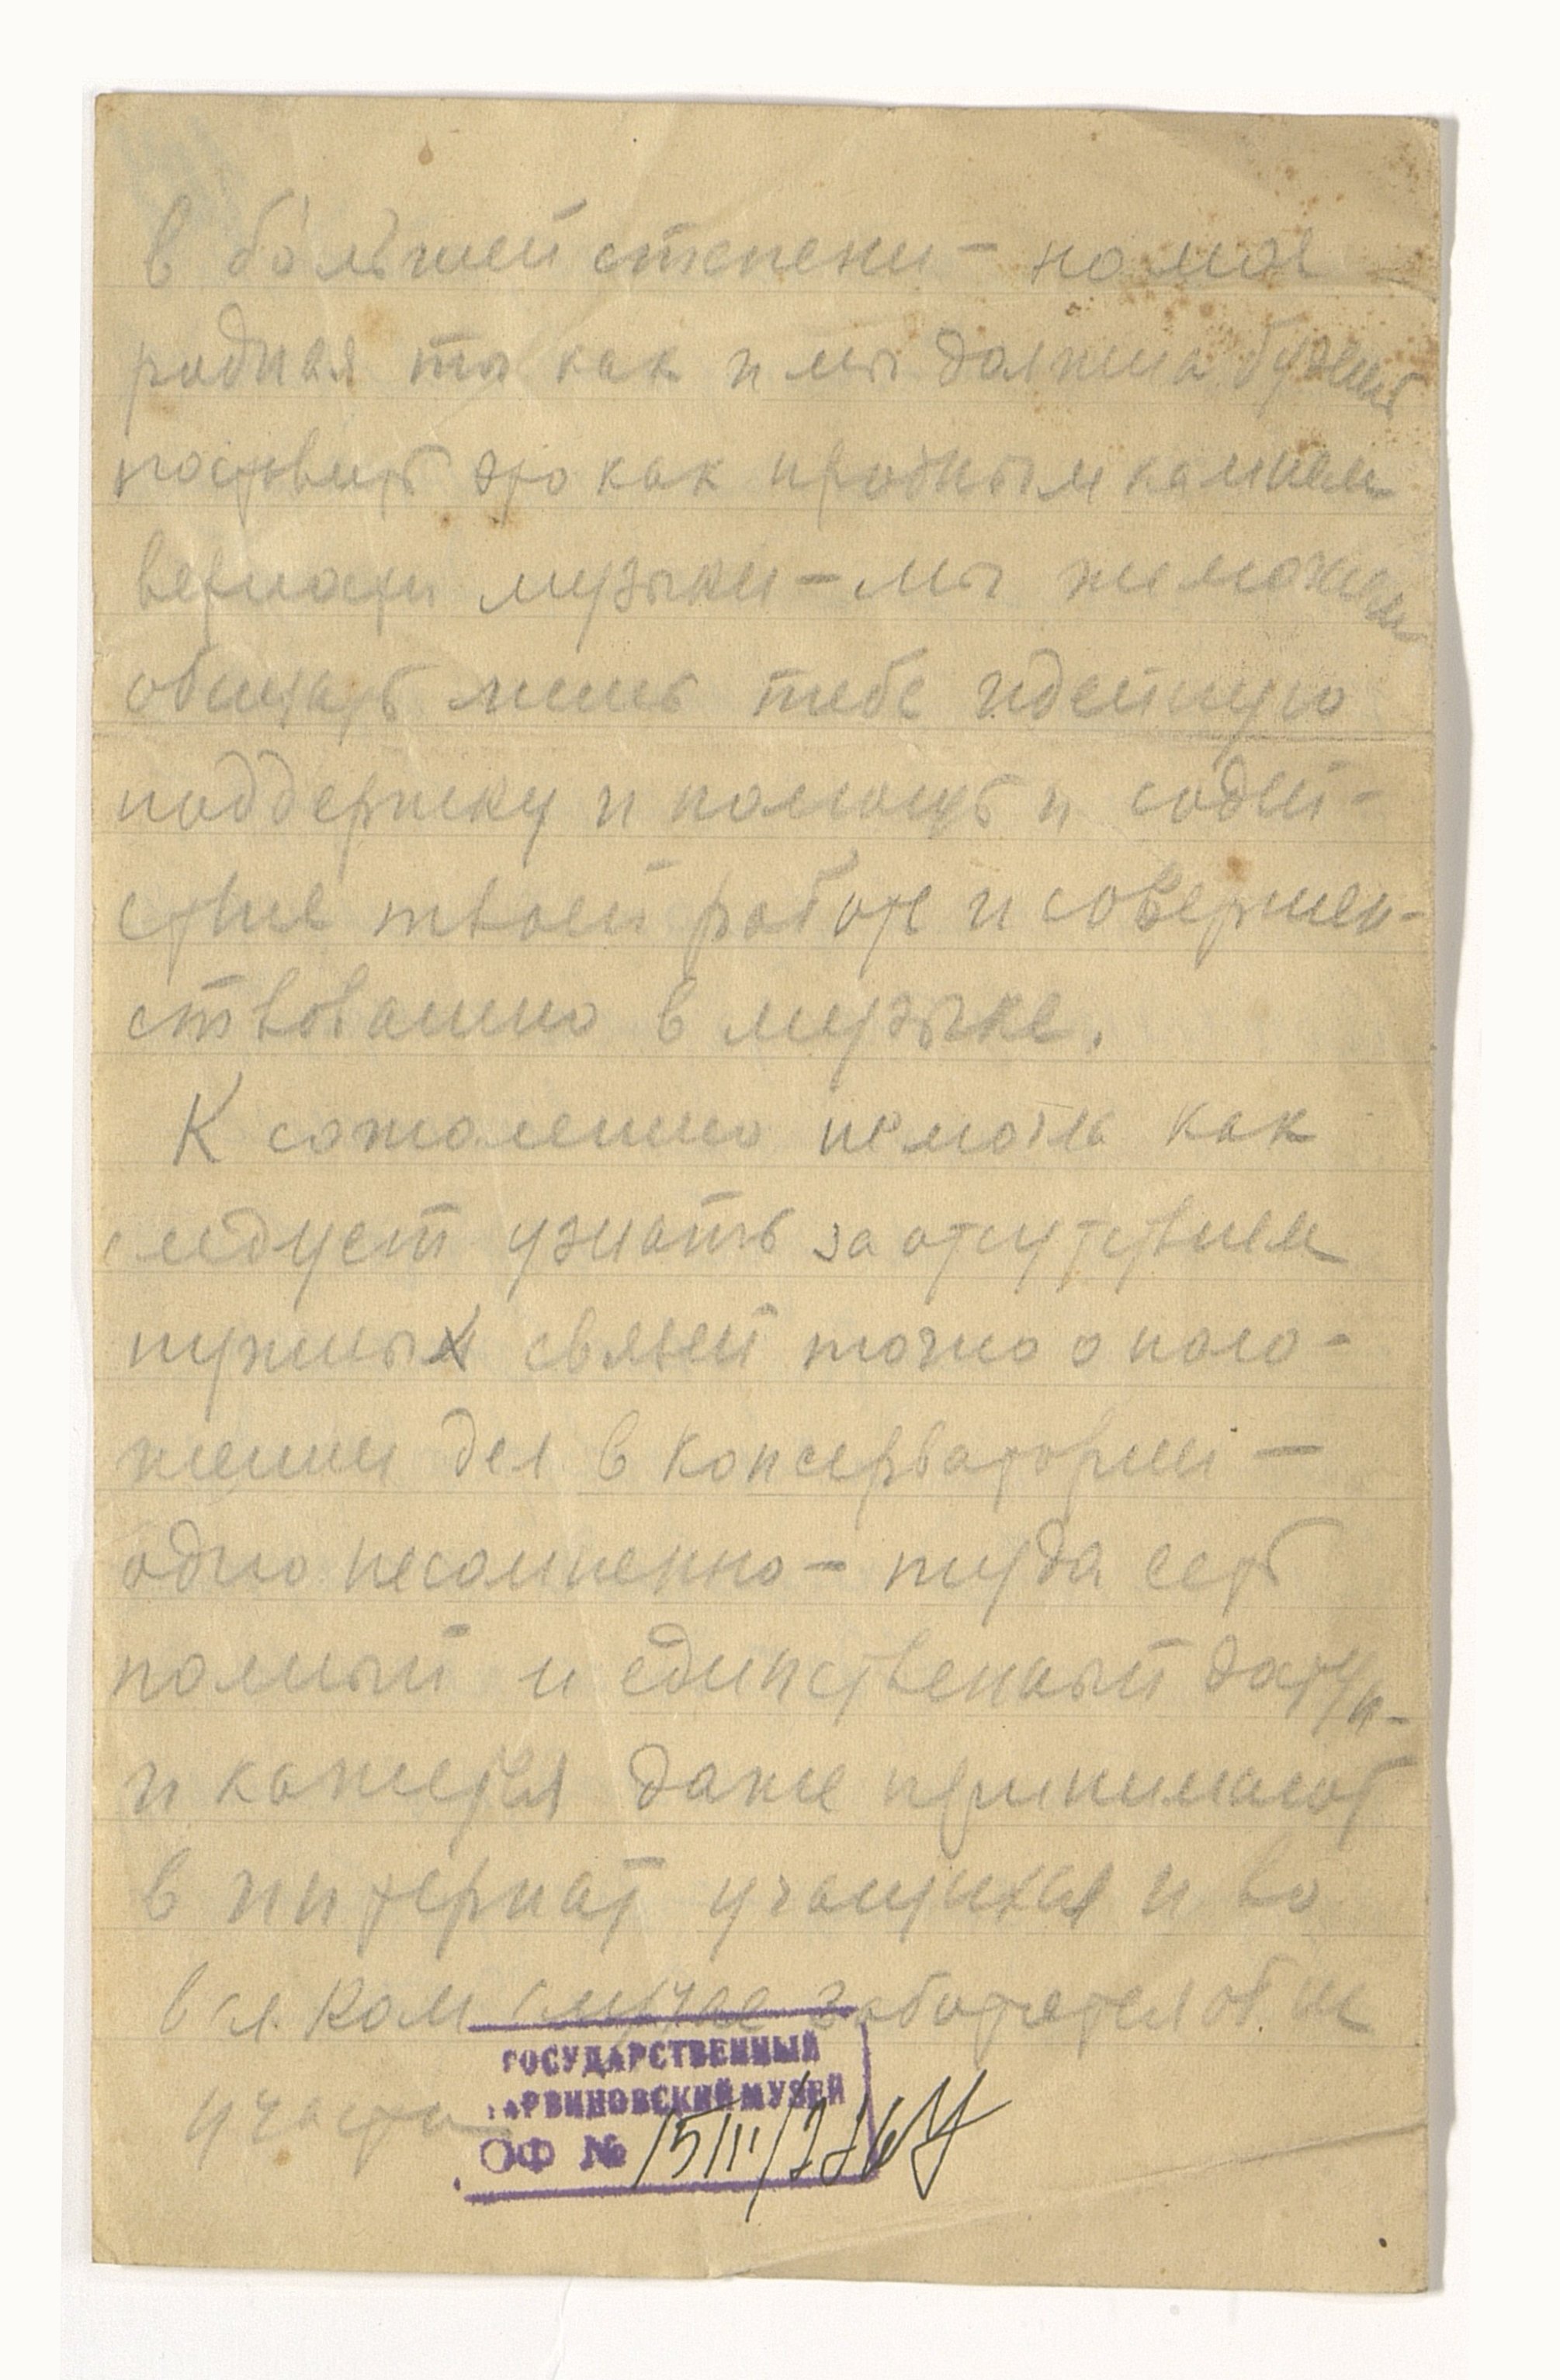 в бо́льшей степени — но моя
родная ты как и мы должна будешь
поставить это как пробным камнем
музыки — мы же можем
обещать лишь тебе идейную
поддержку и помощь и содей-
ствие твоей работе и совершен-
ствованию в музыке.
К сожалению не могла как
следует узнать за отсутствием
нужных связей точно о поло-
жении дел в консерватории —
одно несомненно — туда есть
полный и единственный доступ —
и кажется даже принимают
в интернат учащихся и во
всяком случае заботятся об их
участи
ГОСУДАРСТВЕННЫЙ
ДАРВИНОВСКИЙ МУЗЕЙ
ОФ №